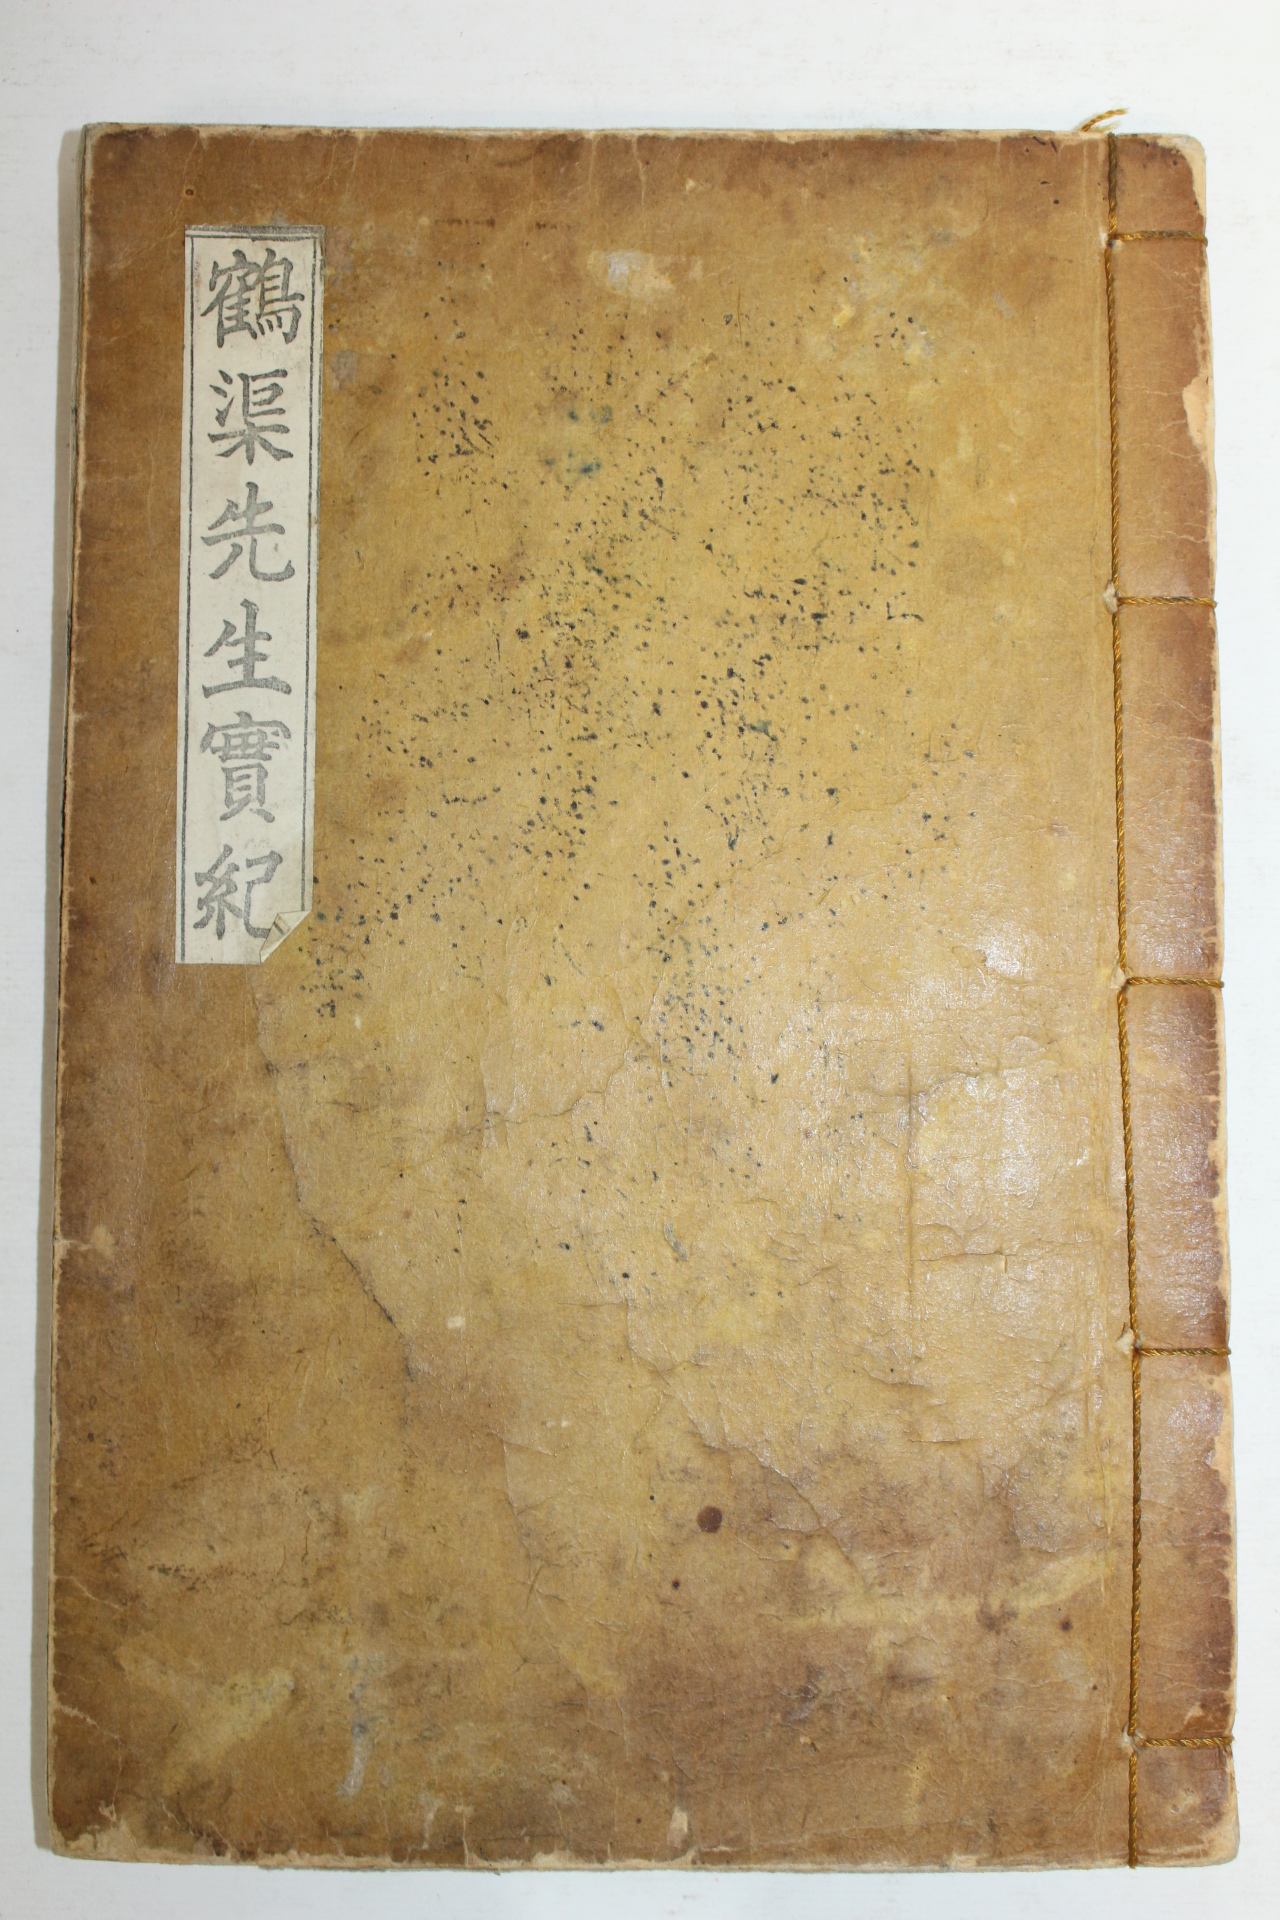 鶴渠先生實紀